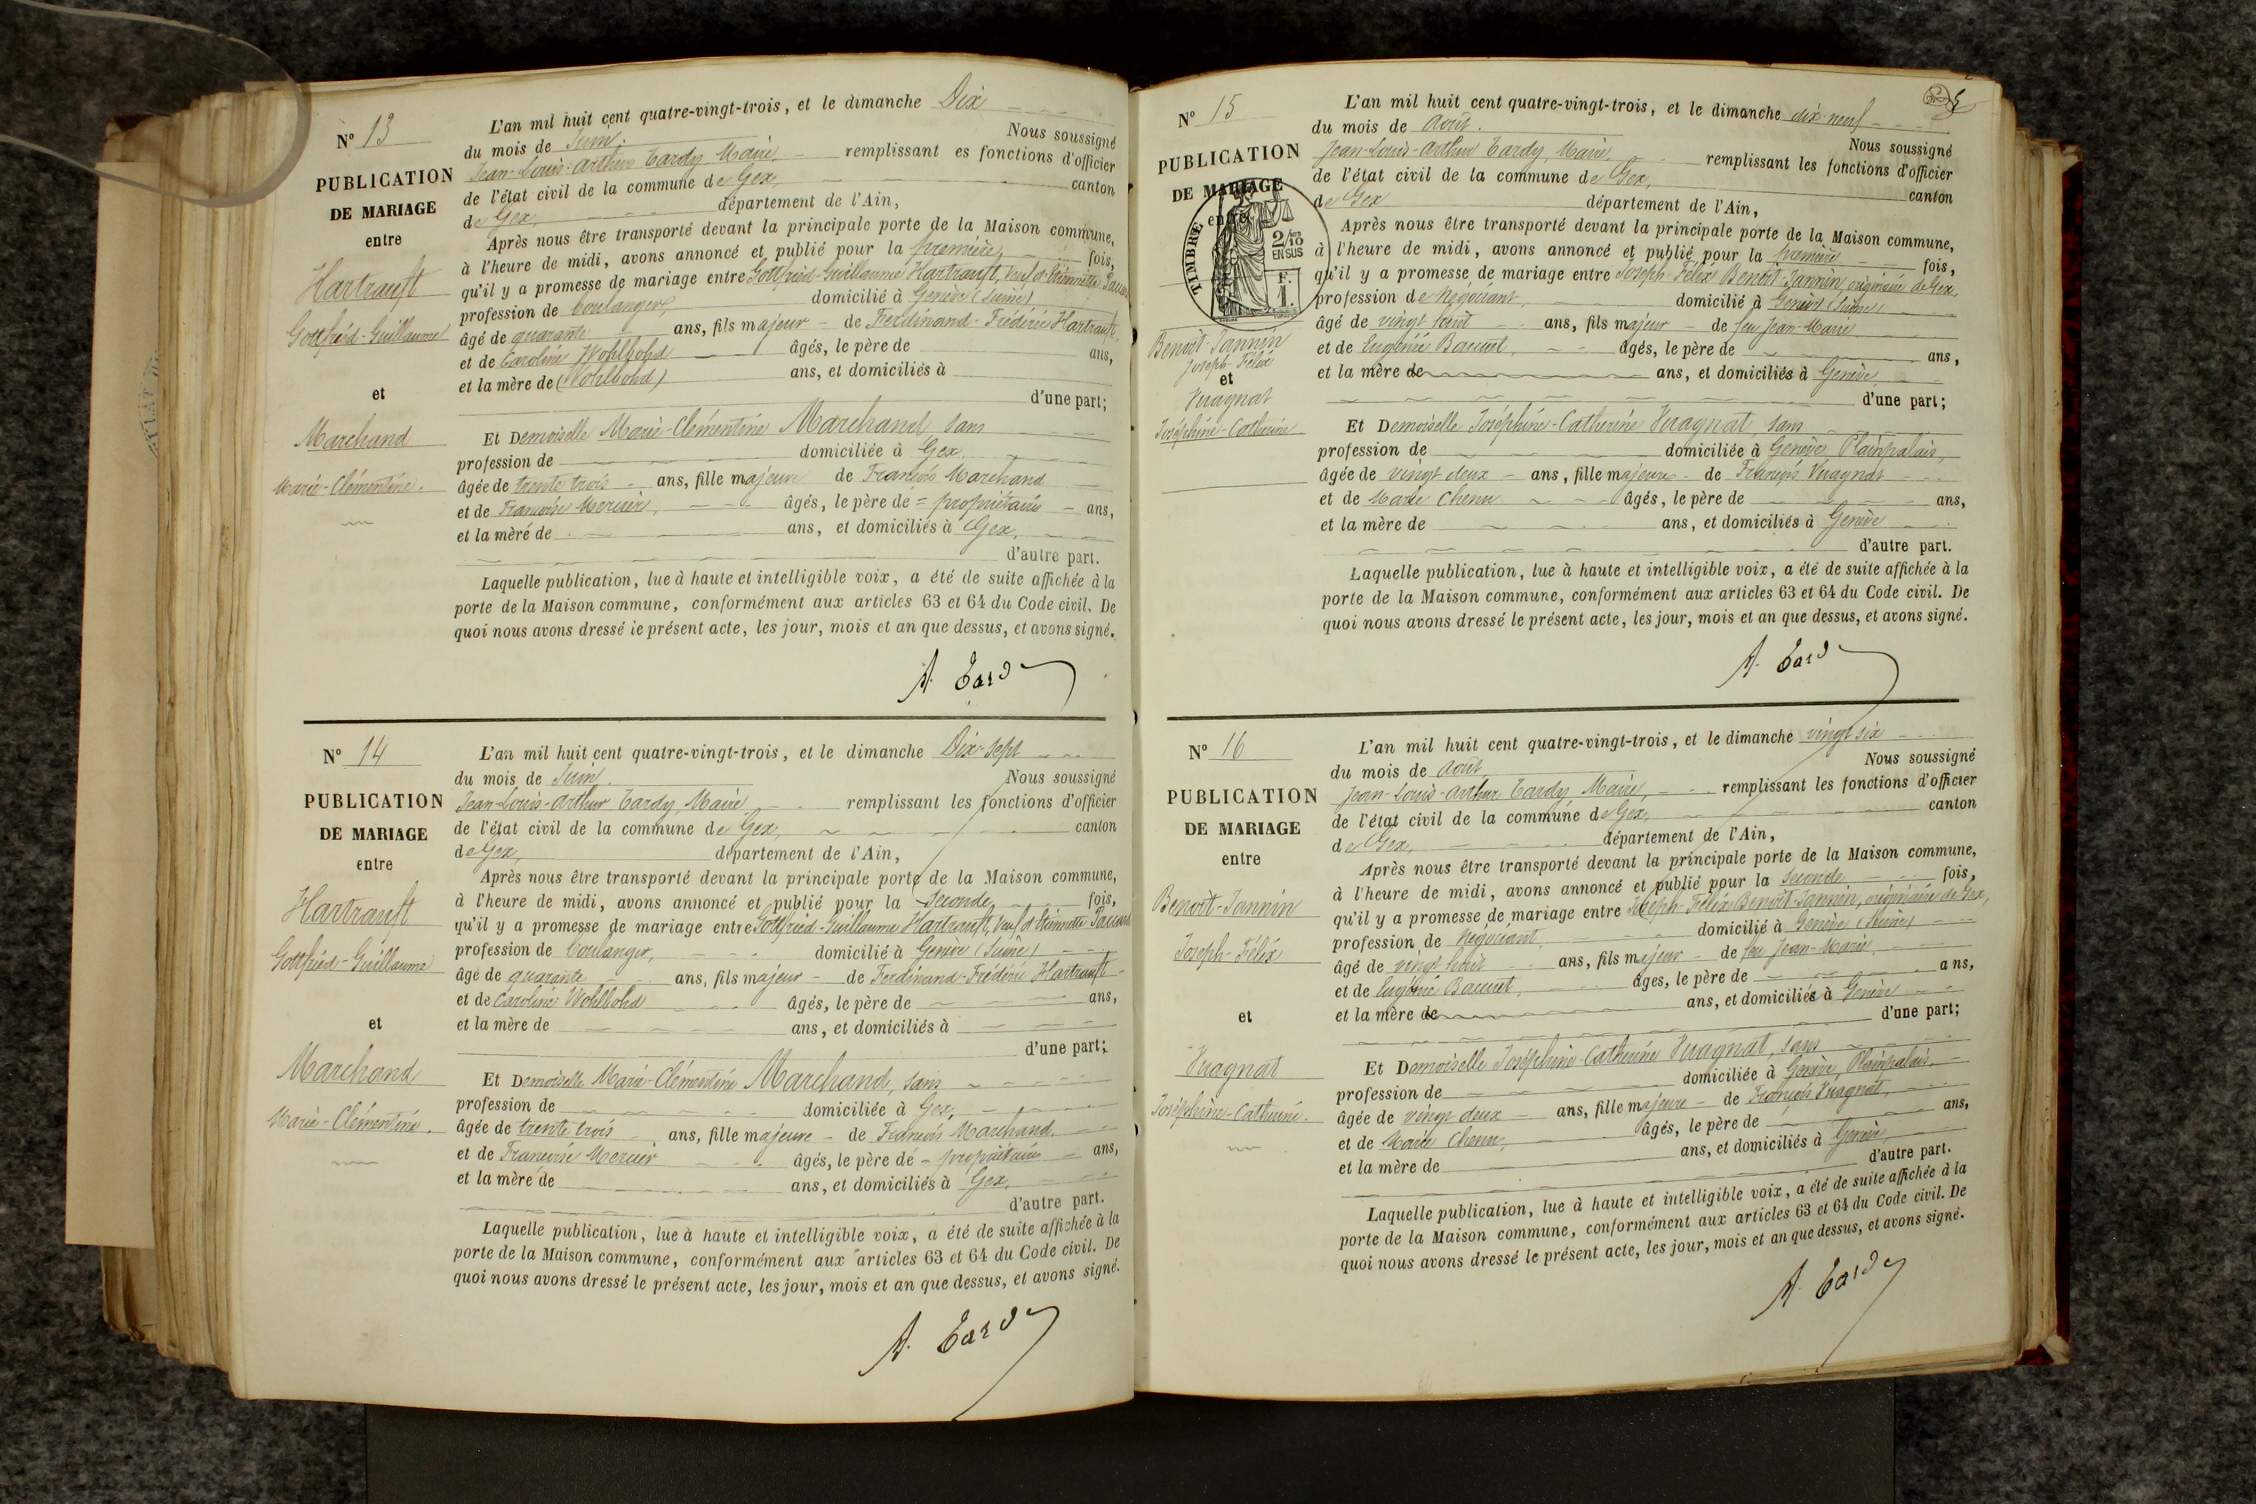 N° 13
PUBLICATION
DE MARIAGE
entre
Hartrauft
Gottfried-Guillaume
et
Marchand
Marie-Clémentine.
L'an mil huit cent quatre-vingt-trois, et le dimanche Dix
du mois de Juin. Nous soussigné
Jean-Louis-Arthur Tardy, Maire, remplissant es fonctions d'officier
de l'état civil de la commune de Gex, canton
de Gex, département de l'Ain,
Après nous être transporté devant la principale porte de la Maison commune,
à l'heure de midi, avons annoncé et publié pour la première fois,
qu'il y a promesse de mariage entre Gottfried-Guillaume Hartrauft, veuf d'
profession de boulanger, domicilié à Genève (Suisse)
âgé de quarante ans, fils majeur de Ferdinand-Frédéric Hartrauft,
et de Caroline Wohlbold âgés, le père de ans,
et la mère de (Wohlbold) ans, et domiciliés à
d'une part;
Et Demoiselle Marie-Clémentine Marchand sans
profession de domiciliée à Gex,
âgée de trente trois ans, fille majeure de François Marchand
et de Françoise Mercier, âgés, le père dé = propriétaire ans,
et la mère de ans, et domiciliés à Gex,
d'autre part.
Laquelle publication, lue à haute et intelligible voix, a été de suite affichée à la
porte de la Maison commune, conformément aux articles 63 et 64 du Code civil. De
quoi nous avons dressé le présent acte, les jour, mois et an que dessus, et avons signé.
A. Tardy
N° 14
PUBLICATION
DE MARIAGE
entre
Hartrauft
Gottfried-Guillaume
et
Marchand
Marie-Clémentine.
L'an mil huit cent quatre-vingt-trois, et le dimanche Dix-sept
du mois de Juin. Nous soussigné
Jean-Louis-Arthur Tardy, Maire, remplissant les fonctions d'officier
de l'état civil de la commune de Gex, canton
de Gex, département de l'Ain,
Après nous être transporté devant la principale porte de la Maison commune,
à l'heure de midi, avons annoncé et publié pour la seconde fois,
qu'il y a promesse de mariage entre Gottfried-Guillaume Hartrauft, veuf d'
profession de boulanger, domicilié à Genève (Suisse)
âgé de quarante ans, fils majeur de Ferdinand-Frédéric Hartrauft
et de Caroline Wohlbold âgés, le père de ans,
et la mère de ans, et domiciliés à
d'une part;
Et Demoiselle Marie-Clémentine Marchand, sans
profession de domiciliée à Gex,
âgée de trente trois ans, fille majeure de François Marchand.
et de Françoise Mercier âgés, le père dé - propriétaire ans,
et la mère de ans, et domiciliés à Gex,
d'autre part.
Laquelle publication, lue à haute et intelligible voix, a été de suite affichée à la
porte de la Maison commune, conformément aux articles 63 et 64 du Code civil. De
quoi nous avons dressé le présent acte, les jour, mois et an que dessus, et avons signé.
A. Tardy
N° 15
PUBLICATION
DE MARIAGE
entre
TIMBRE
2/10
EN SUS
F.
1.
Benoît-Jannin
Joseph-Félix
et
Vuagnat
Joséphine-Catherine.
L'an mil huit cent quatre-vingt-trois, et le dimanche dix-neuf
du mois de Août. Nous soussigné
Jean-Louis-Arthur Tardy, Maire, remplissant les fonctions d'officier
de l'état civil de la commune de Gex, canton
de Gex département de l'Ain,
Après nous être transporté devant la principale porte de la Maison commune,
à l'heure de midi, avons annoncé et publié pour la première fois,
qu'il y a promesse de mariage entre Joseph-Félix Benoît-Jannin, originaire de Gex,
profession de Négociant, domicilié à Genève (Suisse)
âgé de vingt huit ans, fils majeur de feu Jean-Marie
et de Eugénie âgés, le père de ans,
et la mère de ans, et domiciliés à Genève
d'une part;
Et Demoiselle Joséphine-Catherine Vuagnat, sans
profession de domiciliée à Genève, Plainpalais,
âgée de vingt deux ans, fille majeure de François Vuagnat
et de Marie Chenu âgés, le père de ans,
et la mère de ans, et domiciliés à Genève
d'autre part.
Laquelle publication, lue à haute et intelligible voix, a été de suite affichée à la
porte de la Maison commune, conformément aux articles 63 et 64 du Code civil. De
quoi nous avons dressé le présent acte, les jour, mois et an que dessus, et avons signé.
A. Tardy
N° 16
PUBLICATION
DE MARIAGE
entre
Benoît-Jannin
Joseph-Félix
et
Vuagnat
Joséphine-Catherine.
L'an mil huit cent quatre-vingt-trois, et le dimanche vingt six
du mois de Août Nous soussigné
Jean-Louis-Arthur Tardy, Maire, remplissant les fonctions d'officier
de l'état civil de la commune de Gex, canton
de Gex, département de l'Ain,
Après nous être transporté devant la principale porte de la Maison commune,
à l'heure de midi, avons annoncé et publié pour la seconde fois,
qu'il y a promesse de mariage entre Joseph-Félix Benoît-Jannin, originaire de Gex,
profession de Négociant, domicilié à Genève (Suisse)
âgé de vingt huit ans, fils majeur de feu Jean-Marie
et de Eugénie âges, le père de ans,
et la mère de ans, et domiciliés à Genève
d'une part;
Et Demoiselle Joséphine-Catherine Vuagnat, sans
profession de domiciliée à Genève, Plainpalais,
âgée de vingt deux ans, fille majeure de François Vuagnat,
et de Marie Chenu, âgés, le père de ans,
et la mère de ans, et domiciliés à Genève,
d'autre part.
Laquelle publication, lue à haute et intelligible voix, a été de suite affichée à la
porte de la Maison commune, conformément aux articles 63 et 64 du Code civil. De
quoi nous avons dressé le présent acte, les jour, mois et an que dessus, et avons signé.
A. Tardy